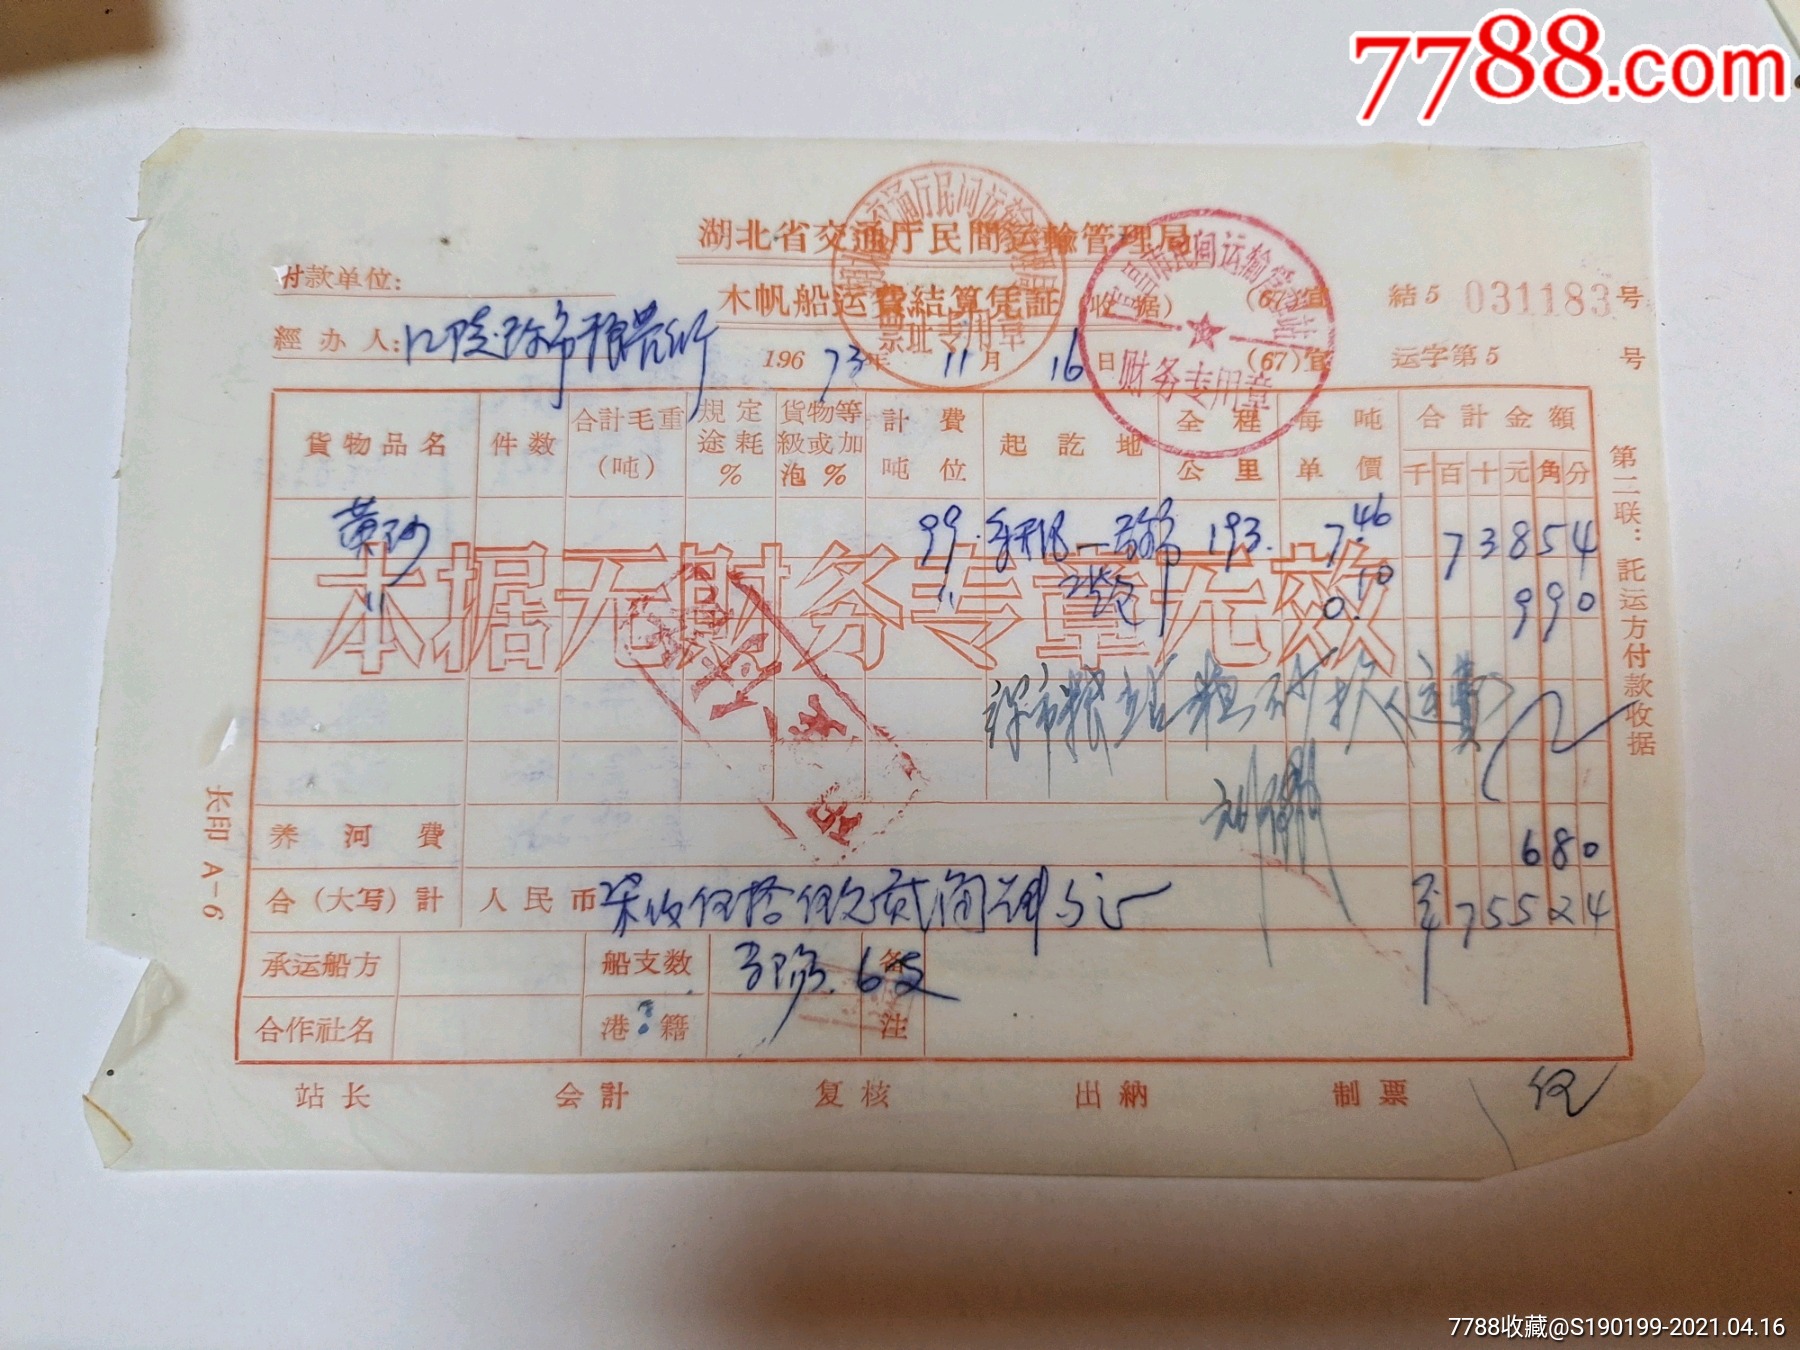 7788.com
湖北省交通厅民間运輸管理局
付款单位:
木帆船运費結算凭証 (收据) (67)宜 結5 031183号
經办人: 江陵
196 73年 11月 16日 (67)宜 运字第5 号
宜昌市民间运输管理站
财务专用章
貨物品名 件数 合計毛重(吨) 規定途耗% 貨物等級或加泡% 計費吨位 起訖地 全程公里 每吨单價 合計金額
千 百 十 元 角 分
黄砂 99. 193. 7.46 73854
〃 〃 0.10 990
本据无财务专章无效
粮站粗砂款(运費)
养河費 680
合(大写)計 人民币 柒佰伍拾伍元贰角肆分正 75524
承运船方 船支数 6支 备注
合作社名 港籍
站长 会計 复核 出納 制票
第二联:託运方付款收据
长印 A-6
7788收藏@S190199-2021.04.16